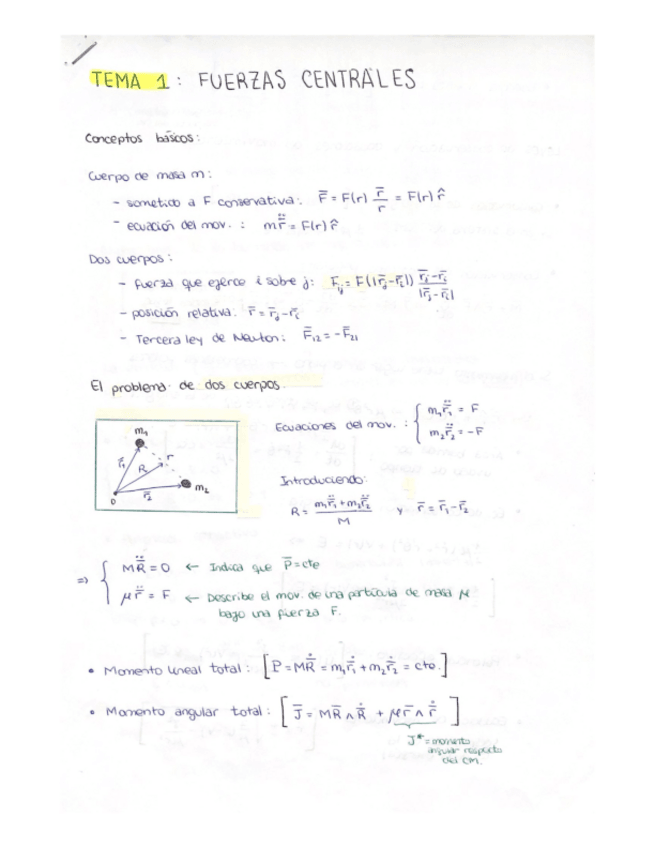 TEMA 1: FUERZAS CENTRALES
Conceptos básicos:
Cuerpo de masa m:
- sometido a F conservativa: F̄ = F(r) r̄/r = F(r) r̂
- ecuación del mov. : m r̄̈ = F(r) r̂
Dos cuerpos:
- fuerza que ejerce i sobre j: F̄ij = F(|r̄j-r̄i|) (r̄j-r̄i)/|r̄j-r̄i|
- posición relativa: r̄ = r̄j-r̄i
- Tercera ley de Newton: F̄12 = -F̄21
El problema de dos cuerpos.
Ecuaciones del mov. : { m1 r̄̈1 = F
m2 r̄̈2 = -F
m1
r̄1
R
r
r̄2
m2
0
Introduciendo:
R = (m1 r̄̈1 + m2 r̄̈2)/M y r̄ = r̄1-r̄2
⇒ { M R̄̈ = 0 ← Indica que P̄ = cte
μ r̄̈ = F ← Describe el mov. de una partícula de masa μ
bajo una fuerza F.
• Momento lineal total: [P = M R̄̇ = m1 r̄̇1 + m2 r̄̇2 = cte.]
• Momento angular total: [J̄ = M R̄ ∧ R̄̇ + μ r̄ ∧ r̄̇]
J* = momento
angular respecto
del CM.